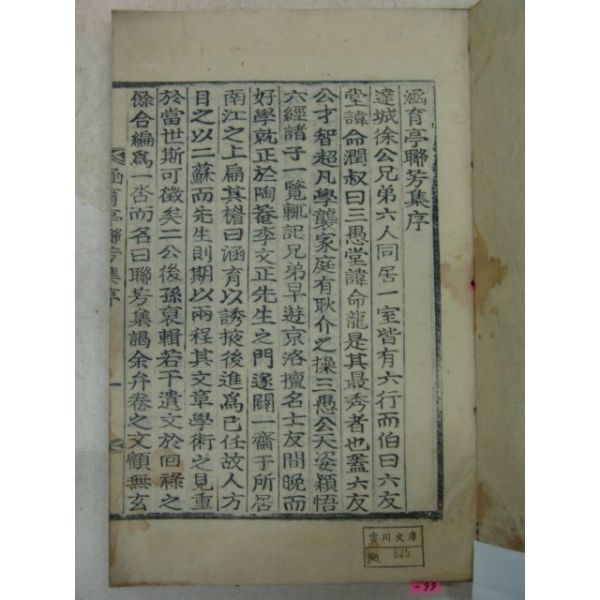 涵育亭聯芳集序
達城徐公兄弟六人同居一室皆有六行而伯曰六友
堂諱命潤叔曰三愚堂諱命龍是其最秀者也蓋六友
公才智超凡學襲家庭有耿介之操三愚公天姿穎悟
六經諸子一覽輒記兄弟早遊京洛擅名士友間晩而
好學就正於陶菴李文正先生之門遂闢一齋于所居
南江之上扁其楣曰涵育以誘掖後進爲己任故人方
目之以二蘇而先生則期以兩程其文章學術之見重
於當世斯可徵矣二公後孫裒輯若干遺文於回祿之
餘合編爲一沓而名曰聯芳集謁余弁卷之文顧無玄
涵育亭聯芳集序
一
雲川文庫
No. 625
-99